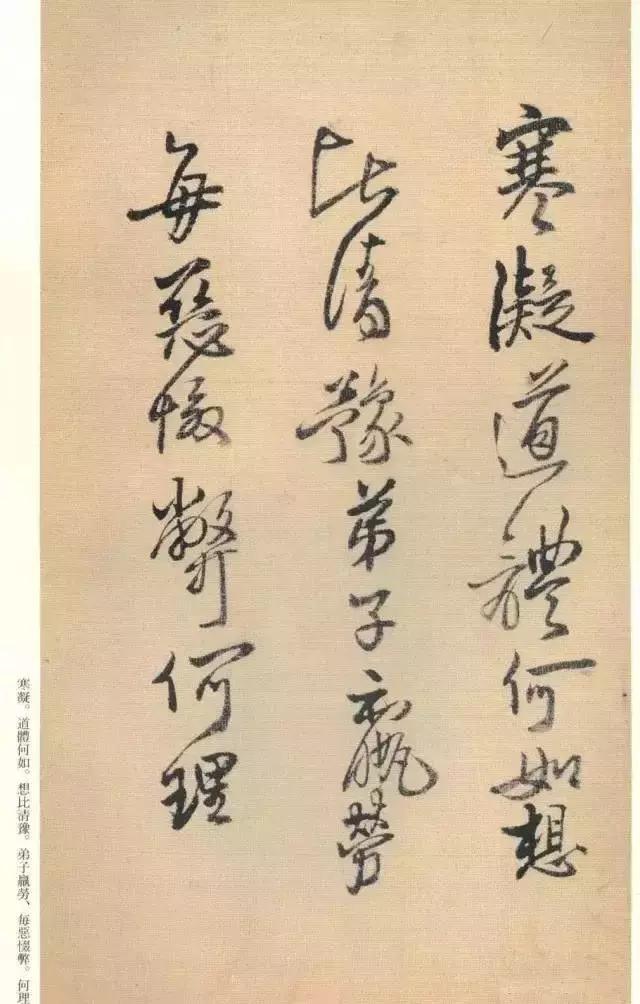 寒凝道體何如想
比清豫弟子羸勞
每惡惙弊何理
寒凝。道體何如。想比清豫。弟子羸勞、每惡惙弊。何理